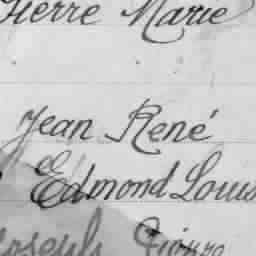 Pierre Marie
Jean René
Edmond Louis
Joseph